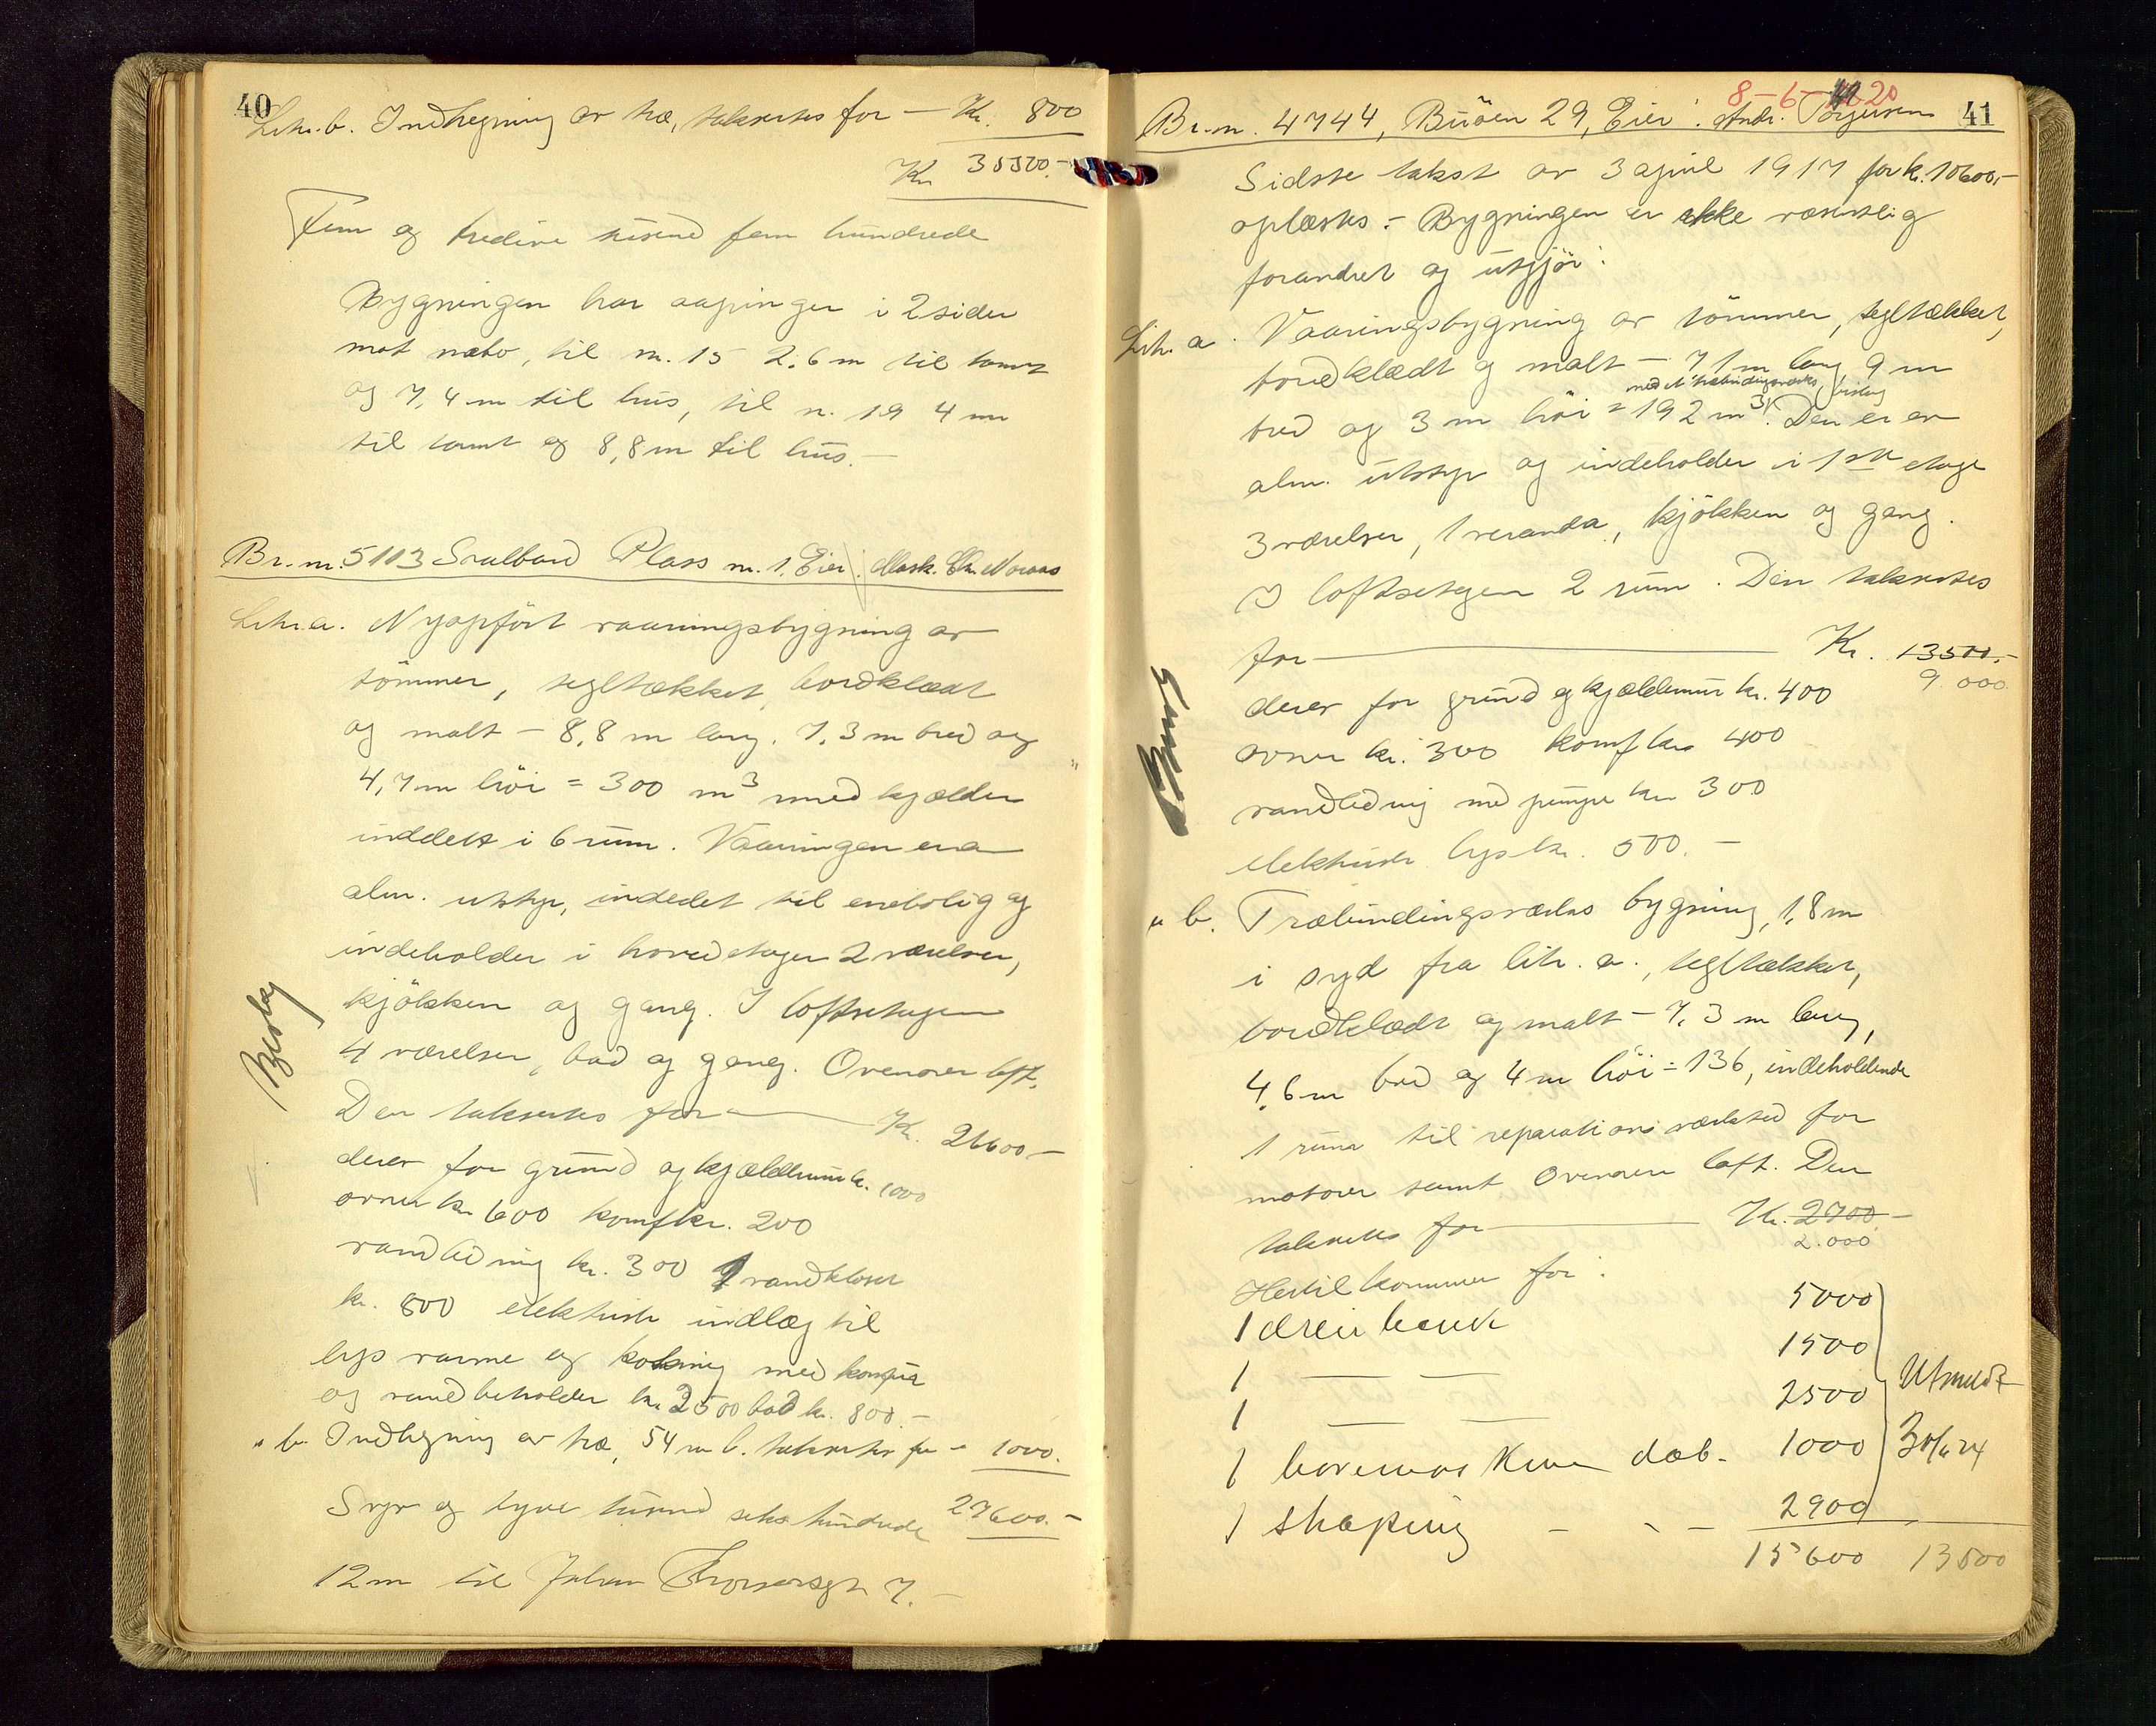 40
Litr. b. Indhegning av træ, takseres for — Kr. 800
Kr 35500.-
Fem og tredive tusend fem hundrede
Bygningen har aapninger i 2 sider
mot nabo, til nr. 15 2,6 m til tomt
og 7,4 m til hus, til nr. 19 4 m
til tomt og 8,8 m til hus. —
Br. nr. 5113 Svalbard Plass nr. 1. Eier: Mask. Chr. Noraas
Litr. a. Nyopført vaaningsbygning av
tömmer, tegltækket, bordklædt
og malt — 8,8 m lang, 7,3 m bred og
4,7 m höi = 300 m³ med kjælder
inddelt i 6 rum. Vaaningen er av
alm. utstyr, inddelt til enebolig og
indeholder i hovedetagen 2 værelser,
kjökken og gang. I loftsetagen
4 værelser, bad og gang. Ovenover loft.
Den takseres for — Kr. 26600.—
derav for grund og kjældermur kr. 1000
ovner kr. 600 komf kr. 200
vandledning kr. 300 1 vandkloset
kr. 800 elektrisk indlæg til
lys varme og kokning med komfur
og vandbeholder kr. 2500 bad kr. 800.—
" b. Indhegning av træ, 54 m l. takseres for — 1000.
Syv og tyve tusend seks hundrede 27600.—
12 m til Johan Thorsensgt 7. —
41
8-6-20
Br. nr. 4744, Buöen 29, Eier: Andr. Torjusen
Sidste takst av 3 april 1917 for kr. 10600,-
oplæstes. — Bygningen er ikke væsentlig
forandret og utgjör:
Litr. a. Vaaningsbygning av tömmer, tegltækket,
bordklædt og malt — 7,1 m lang, 9 m
med et træbindingsverks bislag
bred og 3 m höi = 192 m³. Den er av
alm. utstyr og indeholder i 1ste etage
3 værelser, 1 veranda, kjökken og gang.
I loftsetagen 2 rum. Den takseres
for — Kr. 13500.-
9.000
derav for grund og kjældermur kr. 400
ovner kr. 300 komf kr. 400
vandledning med pumpe kr. 300
elektrisk lys kr. 500. —
" b. Træbindingsverks bygning, 1,8 m
i syd fra litr. a., tegltækket,
bordklædt og malt — 7,3 m lang,
4,6 m bred og 4 m höi = 136, indeholdende
1 rum til reparations værksted for
motorer samt ovenover loft. Den
takseres for — Kr. 2700.—
2.000
Hertil kommer for:
1 dreiebenk 5000
1 — — 1500
1 — — 2500
Utmeldt
1 boremaskine do b. 1000
30/6 24
1 shaping — - — 2900
15600 13500